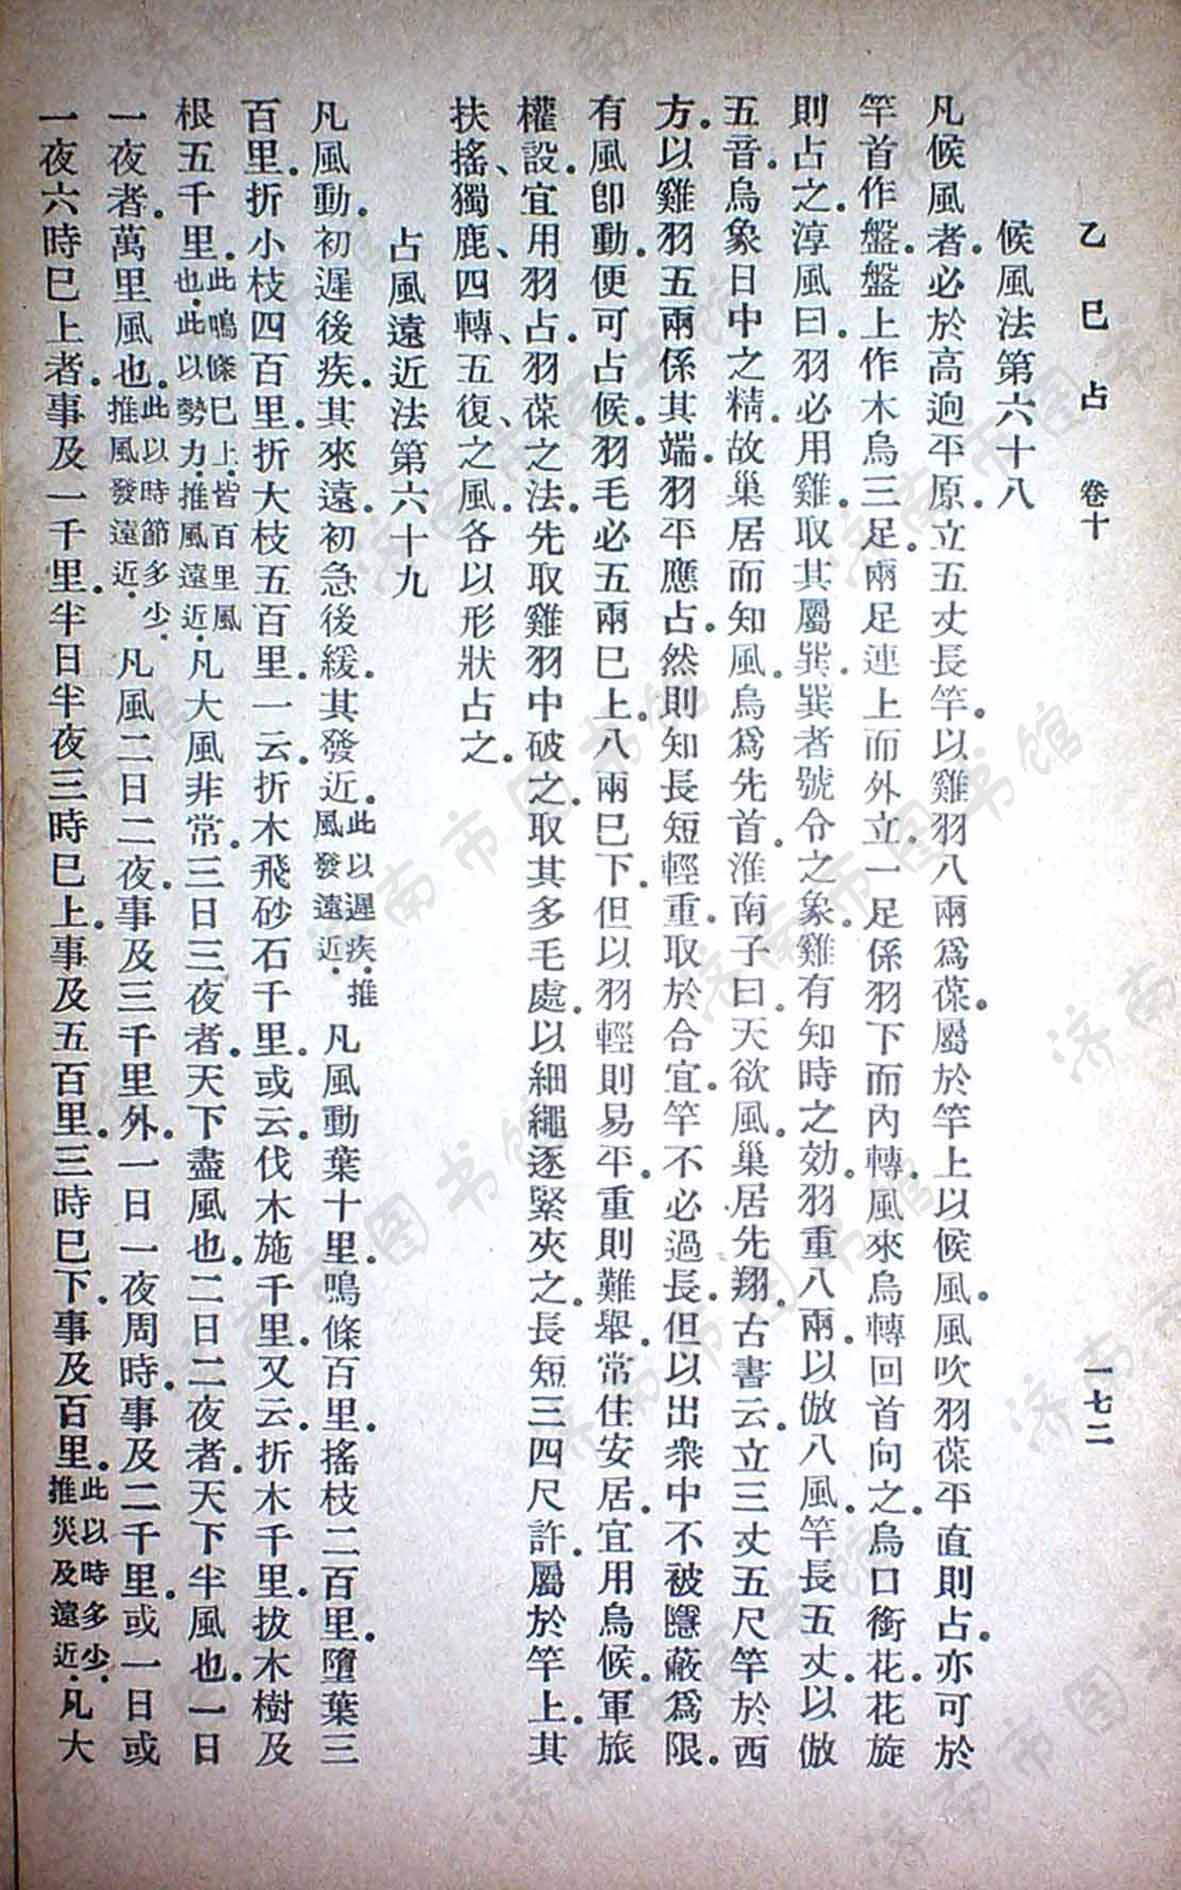 乙巳占　卷十　一七二
候風法第六十八
凡候風者。必於高迥平原。立五丈長竿。以雞羽八兩爲葆。屬於竿上以候風。風吹羽葆平直則占。亦可於
竿首作盤。盤上作木烏三足。兩足連上而外立。一足係羽下而內轉。風來烏轉回首向之。烏口銜花。花旋
則占之。淳風曰。羽必用雞。取其屬巽。巽者號令之象。雞有知時之効。羽重八兩。以倣八風。竿長五丈。以倣
五音。烏象日中之精。故巢居而知風。烏爲先首。淮南子曰。天欲風。巢居先翔。古書云。立三丈五尺竿於西
方。以雞羽五兩係其端。羽平應占。然則知長短輕重。取於合宜。竿不必過長。但以出衆中不被隱蔽爲限。
有風卽動。便可占候。羽毛必五兩巳上。八兩巳下。但以羽輕則易平。重則難舉。常住安居。宜用烏候。軍旅
權設。宜用羽占。羽葆之法。先取雞羽中破之。取其多毛處。以細繩逐緊夾之。長短三四尺許。屬於竿上。其
扶搖、獨鹿、四轉、五復、之風。各以形狀占之。
占風遠近法第六十九
凡風動。初遲後疾。其來遠。初急後緩。其發近。此以遲疾。推風發遠近。凡風動葉十里。鳴條百里。搖枝二百里。墮葉三
百里。折小枝四百里。折大枝五百里。一云。折木飛砂石千里。或云。伐木施千里。又云。折木千里。拔木樹及
根五千里。此鳴條巳上。皆百里風也。此以勢力。推風遠近。凡大風非常。三日三夜者。天下盡風也。二日二夜者。天下半風也。一日
一夜者。萬里風也。此以時節多少。推風發遠近。凡風二日二夜。事及三千里外。一日一夜周時。事及二千里。或一日或
一夜六時巳上者。事及一千里。半日半夜三時巳上。事及五百里。三時巳下。事及百里。此以時多少。推災及遠近。凡大